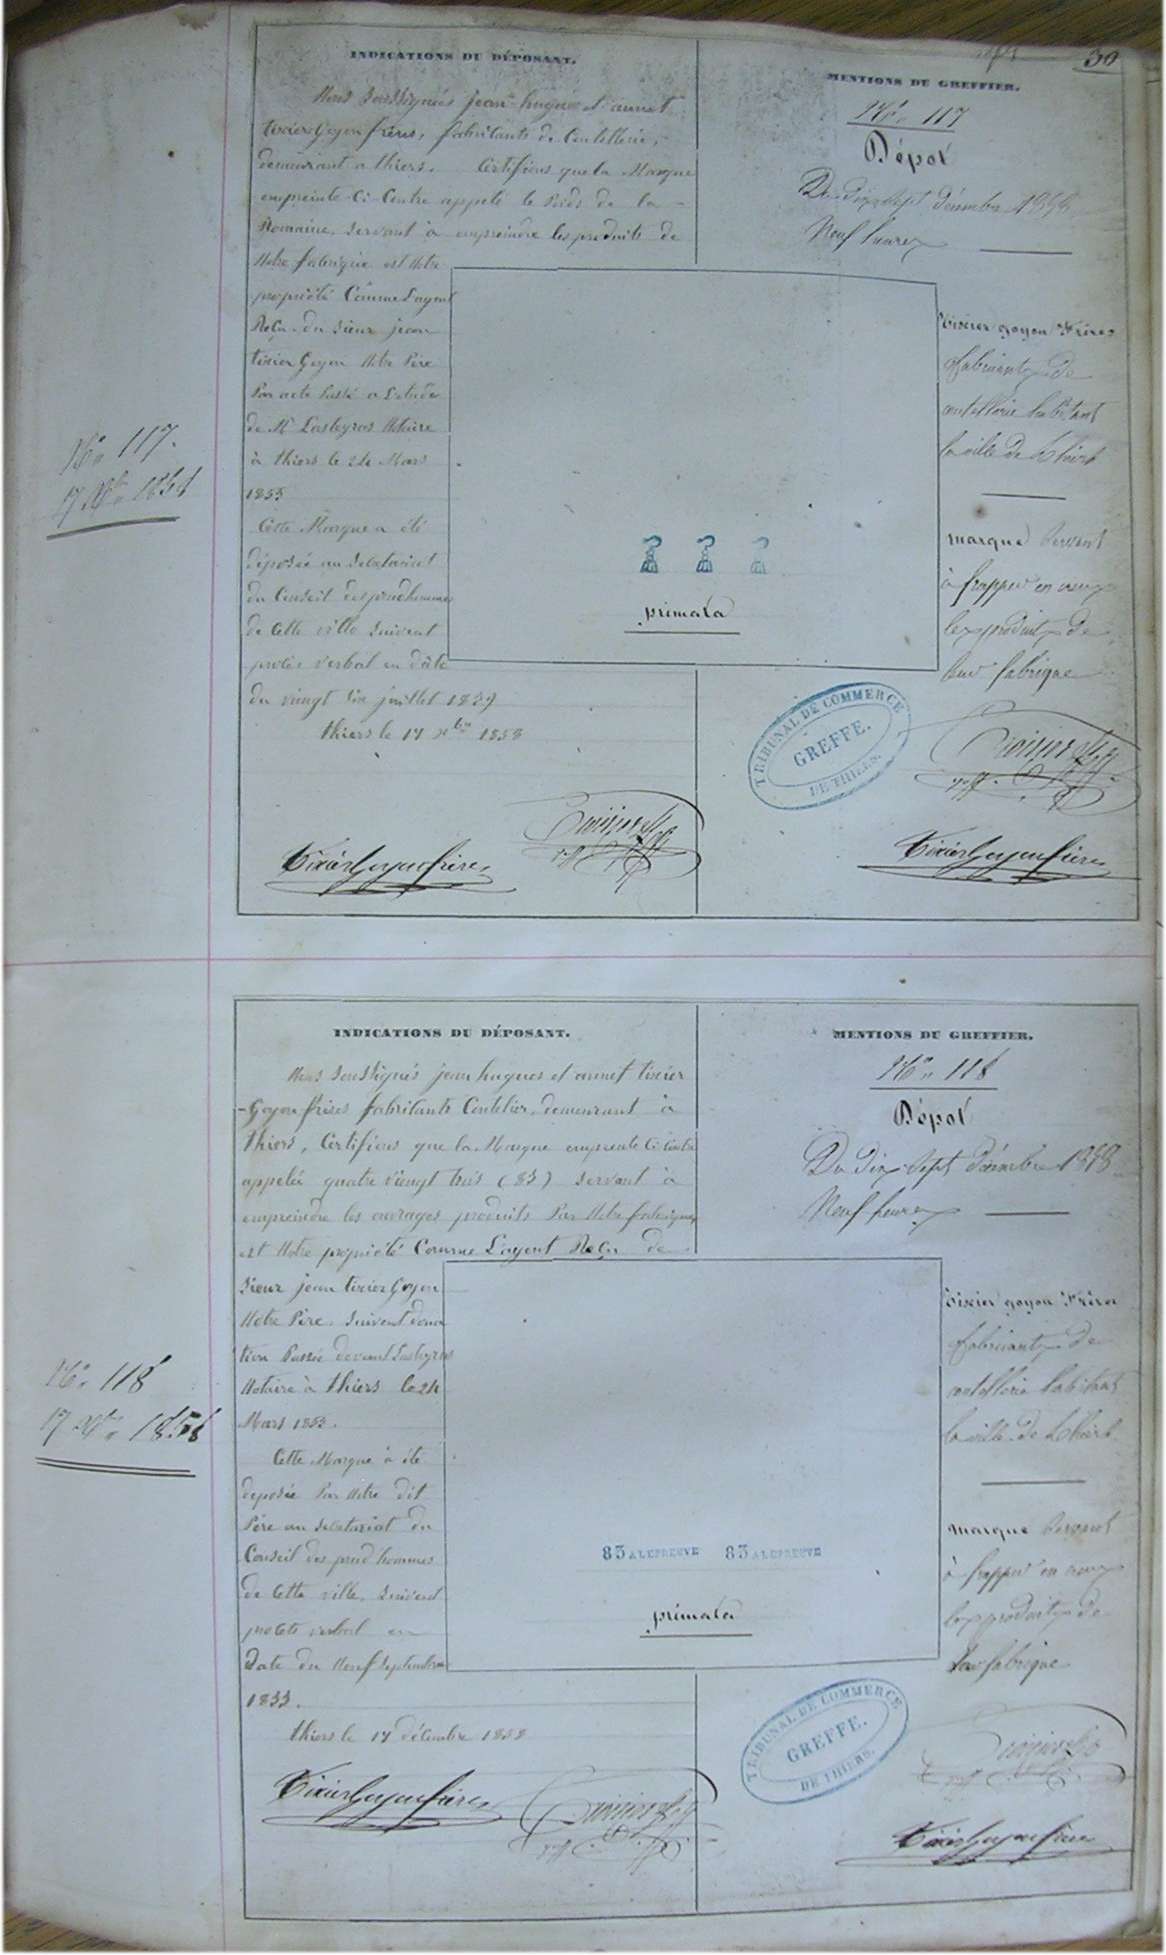 30
INDICATIONS DU DÉPOSANT.
Nous soussignés jean hugues et annet
tixier Goyon frères, fabricants de Coutellerie,
demeurant a thiers. Certifions que la Marque
empreinte Ci Contre appelé le Poids de la
Romaine, servant à empreindre les produits de
Notre fabrique est Notre
propriété Comme l'ayant
Reçu du sieur jean
tixier Goyon Notre Père
Par acte Passé a L'etude
de Me Lasteyras Notaire
à thiers le 24 Mars
1853
Cette Marque a été
déposée au Secretariat
du Conseil des prudhommes
de Cette ville suivent
procès verbal en date
du vingt six juillet 1829
thiers le 17 xbre 1858
Tixier Goyon frères
MENTIONS DU GREFFIER.
No. 117
Dépot
Du dix sept décembre 1858
Neuf heures
Tixier goyon Frères
fabricants de
coutellerie habitant
la ville de Thiers
marque servant
à frapper en creux
les produits de
leur fabrique
primata
TRIBUNAL DE COMMERCE
GREFFE.
DE THIERS.
Tixier Goyon frères
No. 117.
17 Xbre 1858
INDICATIONS DU DÉPOSANT.
Nous soussignés jean hugues et annet tixier
-Goyon frères fabricants Coutelier, demeurant à
thiers, Certifions que la Marque empreinte Ci Contre
appelée quatre vingt trois (83) servant à
empreindre les ouvrages produits Par Notre fabrique
est Notre propriété Comme L'ayent Reçu de
Sieur jean tixier Goyon
Notre Père, Suivent dona
tion Passée devant Lasteyras
Notaire à thiers le 24
Mars 1853.
Cette Marque à été
deposée Par Notre dit
Père au Secretariat du
Conseil des prud'hommes
de Cette ville, Suivent
procès verbal en
Date du Neuf Septembre
1833.
thiers le 17 décembre 1858
Tixier Goyon frères
MENTIONS DU GREFFIER.
No. 118
Dépot
Du dix sept décembre 1858
Neuf heures
Tixier goyon Frères
fabricants de
coutellerie habitant
la ville de Thiers
marque servant
à frapper en creux
les produits de
leur fabrique
83 A LEPREUVE 83 A LEPREUVE
primata
TRIBUNAL DE COMMERCE
GREFFE.
DE THIERS.
Tixier Goyon frères
No. 118
17 Xbre 1858